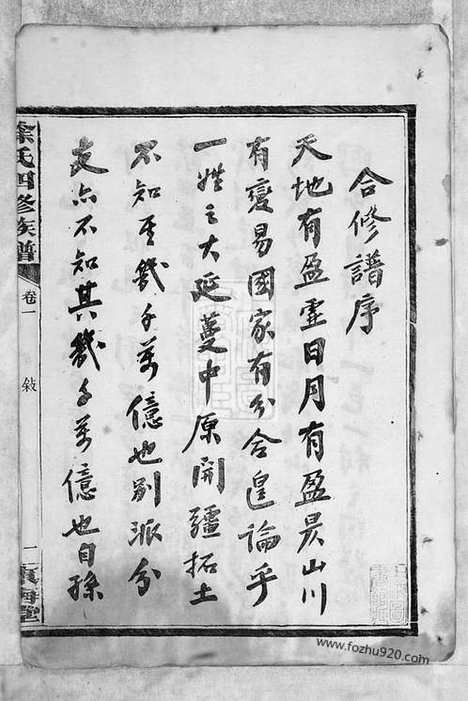 合修譜序
天地有盈虛日月有盈昃山川
有變易國家有分合遑論乎
一姓之大延蔓中原開疆拓土
不知其幾千萬億也別派分
支亦不知其幾千萬億也自孫
氏四修族譜
卷一
敘
一
堂
www.fozhu920.com